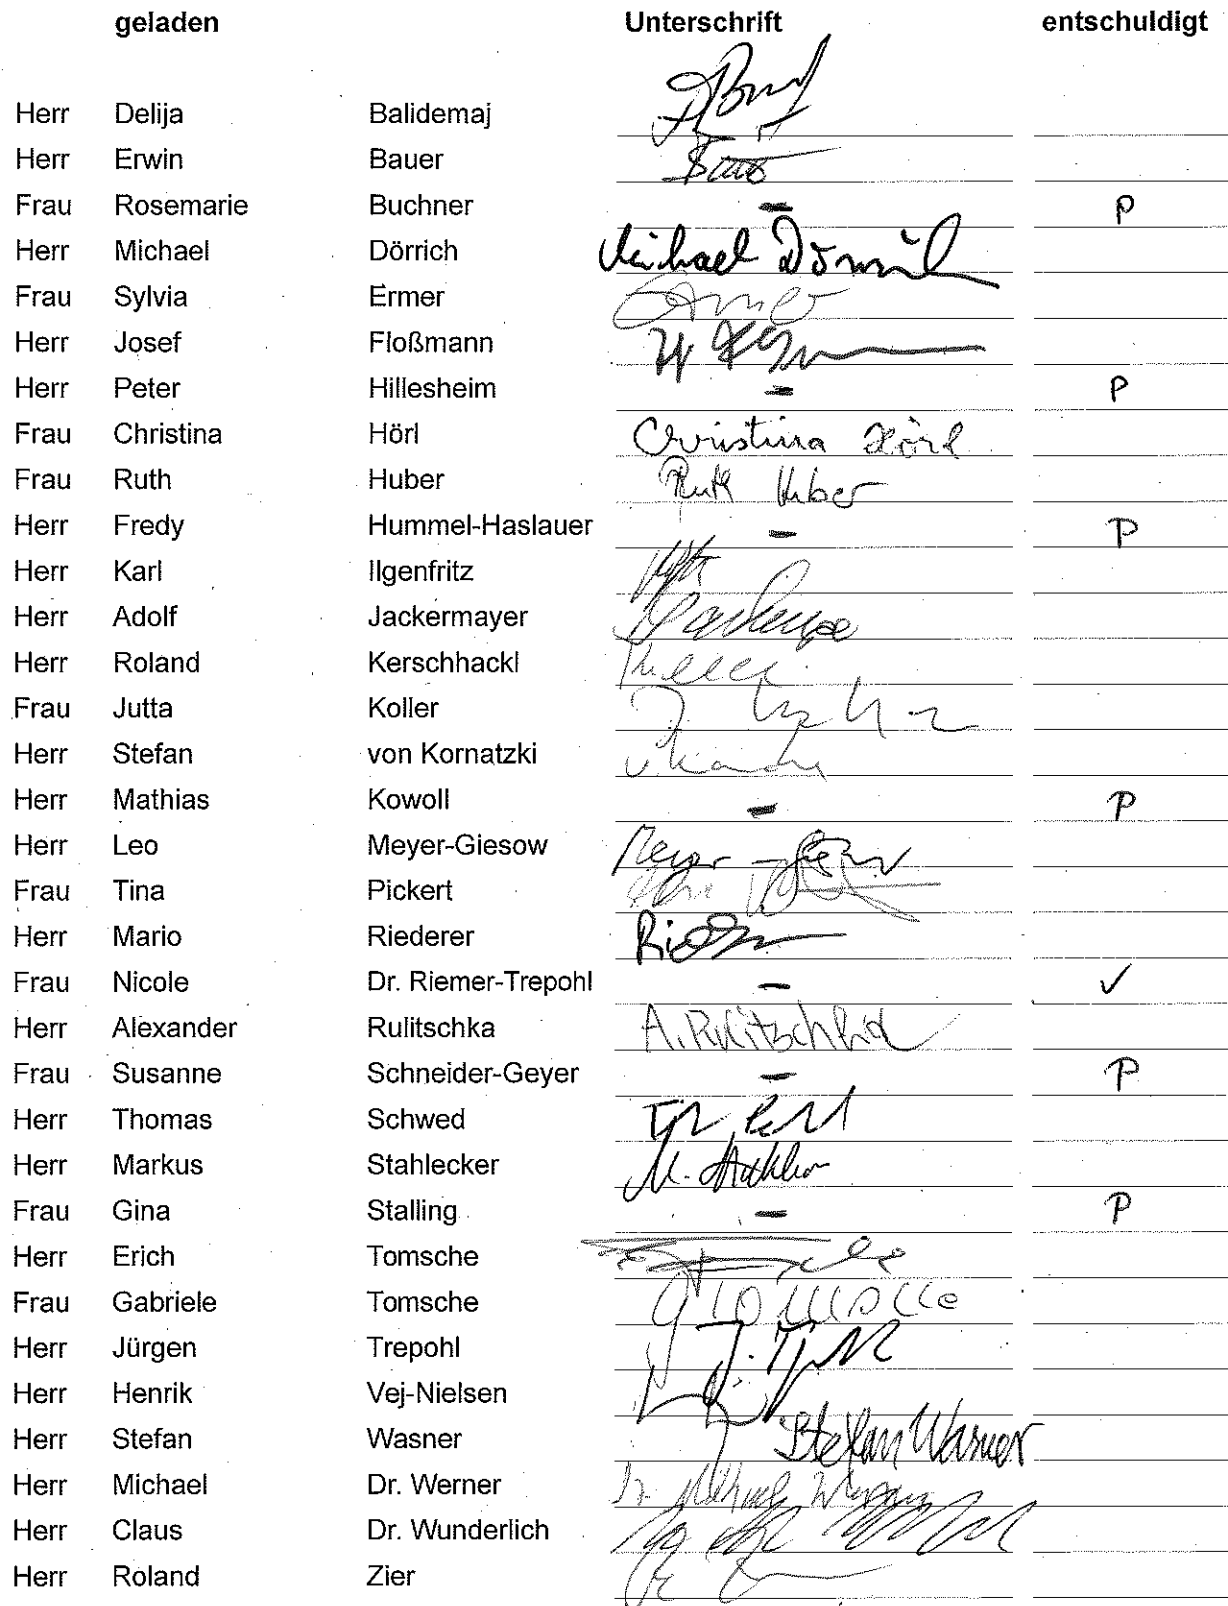 geladen Unterschrift entschuldigt
Herr Delija Balidemaj
Herr Erwin Bauer
Frau Rosemarie Buchner - P
Herr Michael Dörrich Michael Dörrich
Frau Sylvia Ermer Ermer
Herr Josef Floßmann
Herr Peter Hillesheim - P
Frau Christina Hörl Christina Hörl
Frau Ruth Huber Ruth Huber
Herr Fredy Hummel-Haslauer - P
Herr Karl Ilgenfritz
Herr Adolf Jackermayer
Herr Roland Kerschhackl
Frau Jutta Koller
Herr Stefan von Kornatzki
Herr Mathias Kowoll - P
Herr Leo Meyer-Giesow Meyer-
Frau Tina Pickert
Herr Mario Riederer
Frau Nicole Dr. Riemer-Trepohl - ✓
Herr Alexander Rulitschka A. Rulitschka
Frau Susanne Schneider-Geyer - P
Herr Thomas Schwed
Herr Markus Stahlecker M.
Frau Gina Stalling - P
Herr Erich Tomsche
Frau Gabriele Tomsche
Herr Jürgen Trepohl J.
Herr Henrik Vej-Nielsen
Herr Stefan Wasner Stefan Wasner
Herr Michael Dr. Werner Dr. Michael Werner
Herr Claus Dr. Wunderlich
Herr Roland Zier